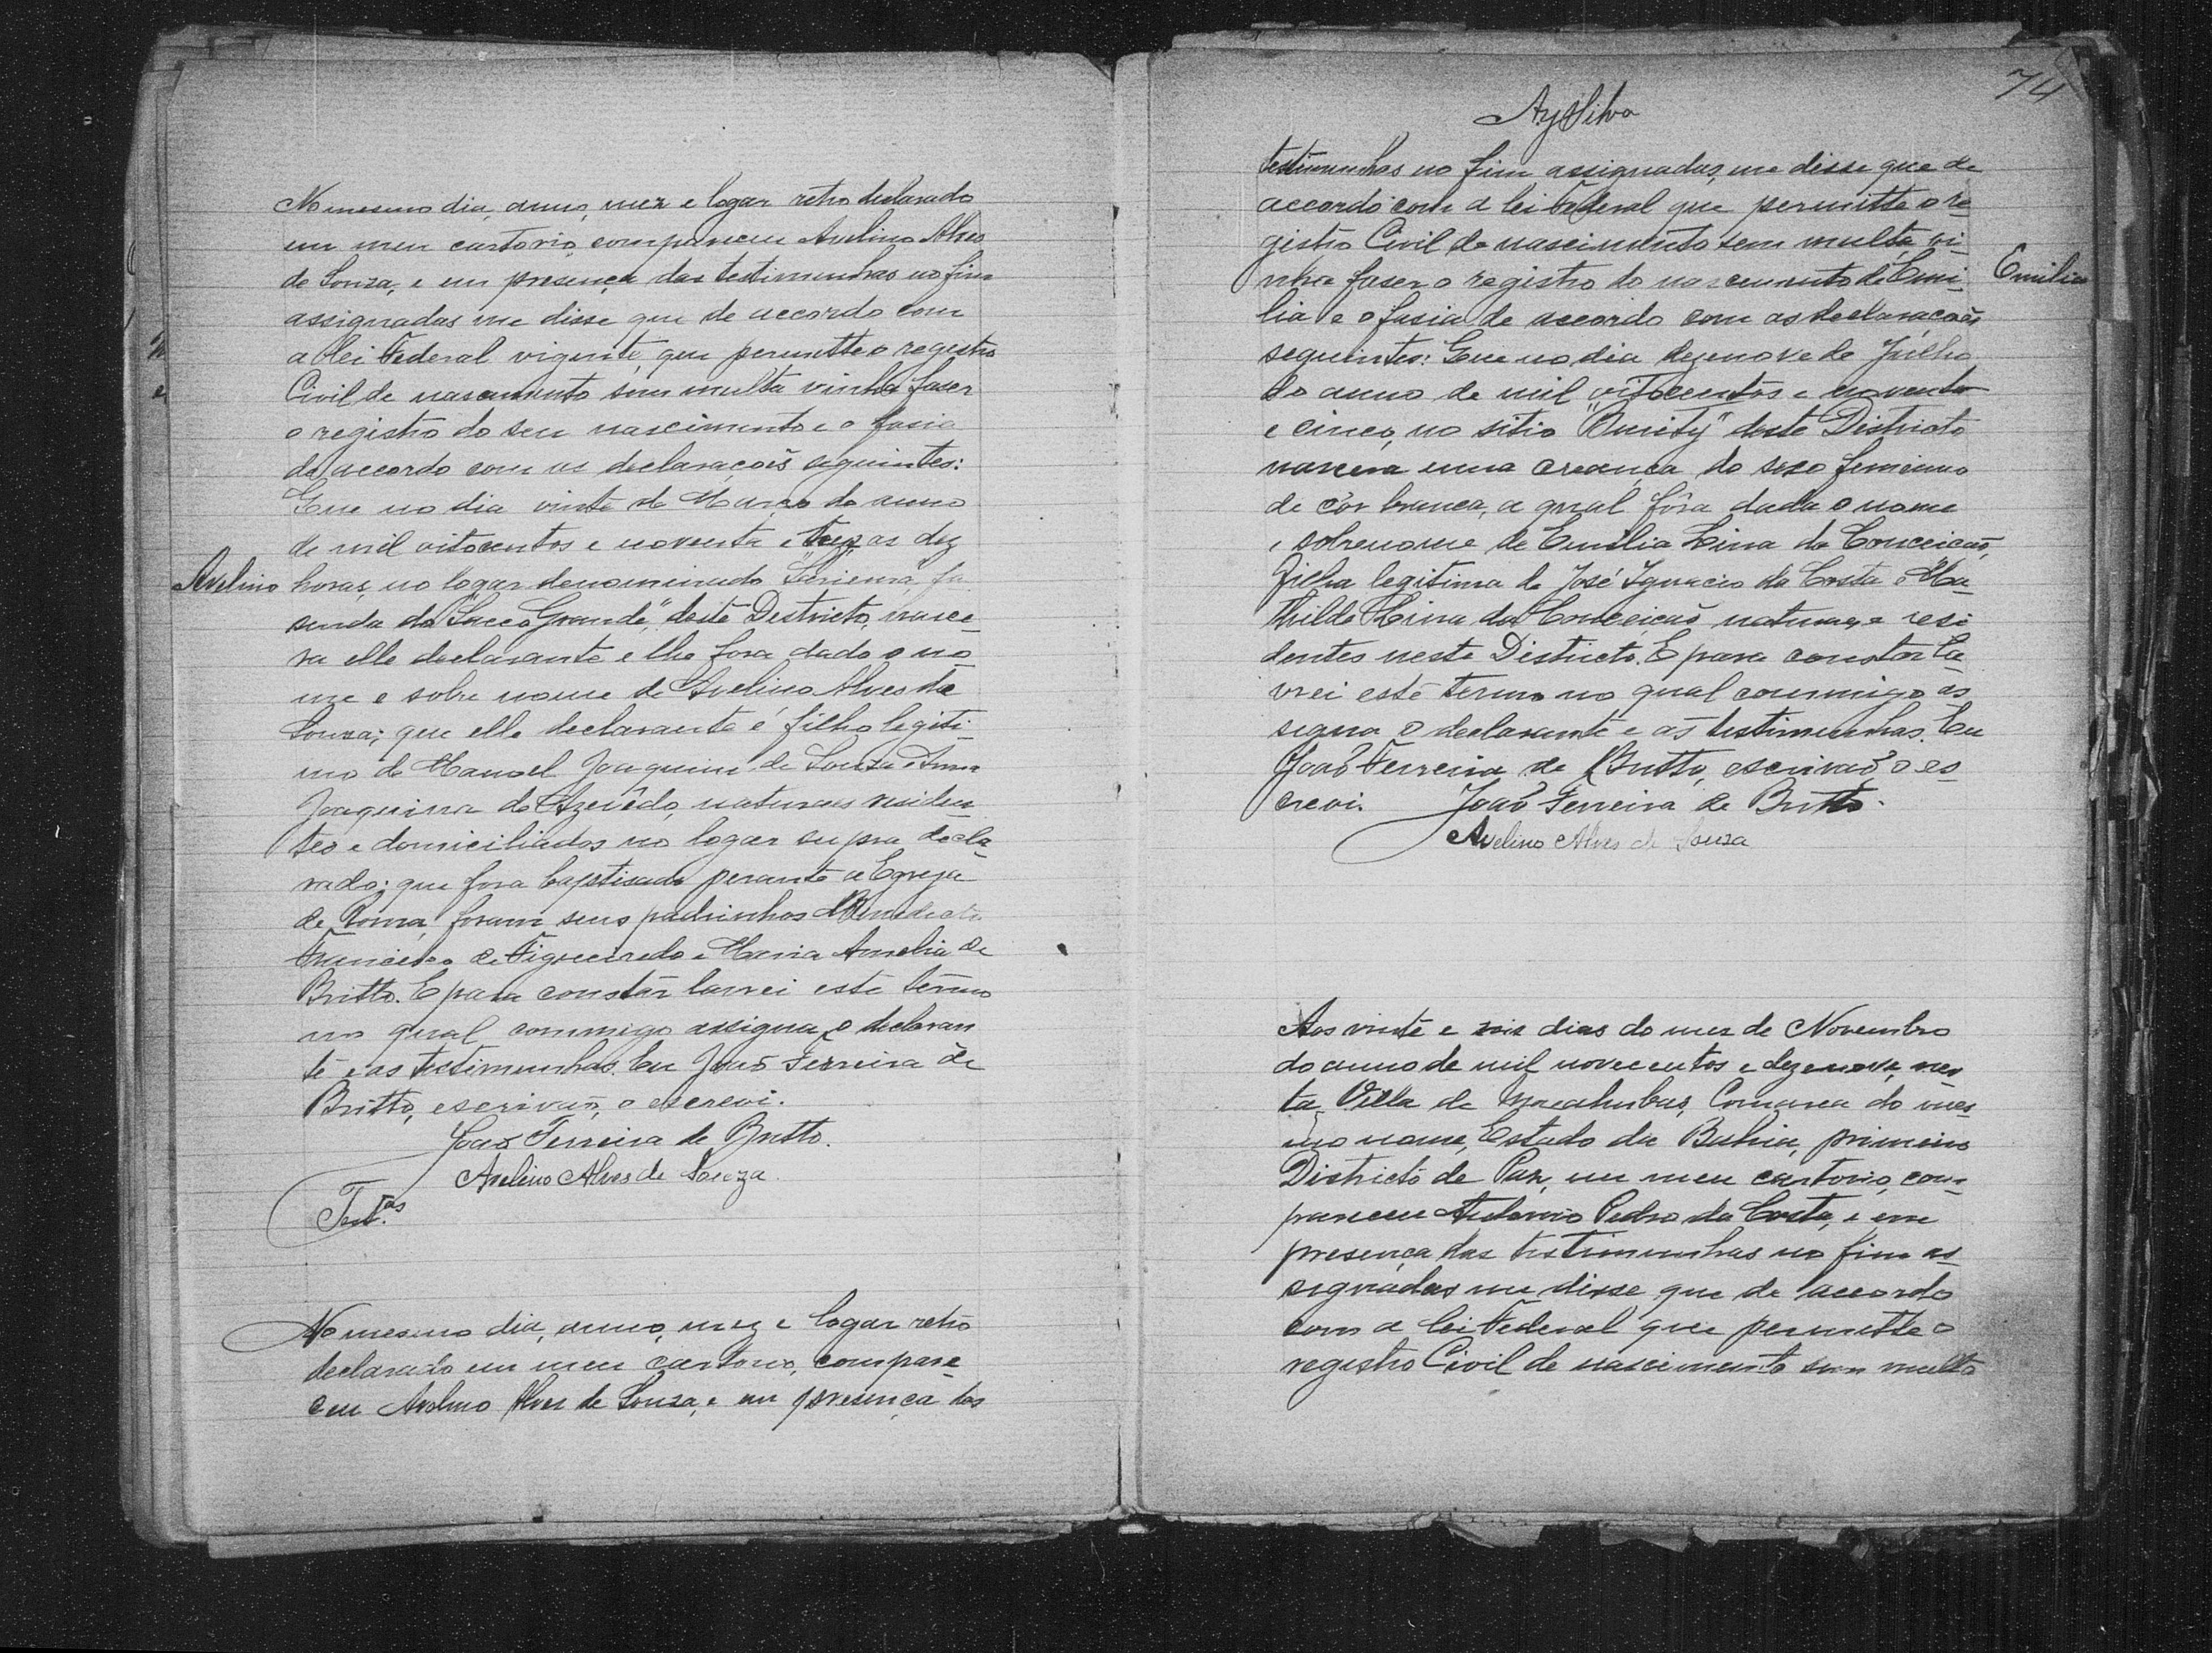 No mesmo dia, anno, mez e logar retro declarado
em meu cartorio, compareceu Avelino Alves
de Souza, e em presença das testimunhas no fim
assignadas me disse que de accordo com
a lei Federal vigente, que permitte o registro
Civil de nascimento sem multa vinha faser
o registro do seu nascimento e o fasia
de accordo com as declaraçoẽs seguintes:
Que no dia vinte de Março do anno
de mil oitocentos e noventa e trez, as dez
Avelino
horas, no logar denominado "Sariema", fa
senda do "Sacco Grande", deste Districto, nasce-
ra elle declarante e lhe fora dado o no
me e sobre nome de Avelino Alves de
Souza; que elle declarante é filho legiti-
mo de Manoel Joaquim de Souza e Anna
Joaquina de Azevêdo, naturaes residen
tes e domiciliados no logar supra decla
rado; que fora baptisado perante a Egreja
de Roma, foram seus padrinhos Benedicto
Francisco de Figueiredo e Maria Amelia de
Britto. E para constar lavrei este termo
no qual commigo assigna o declaran
te e as testimunhas. Eu João Ferreira de
Britto, escrivaõ, o escrevi.
João Ferreira de Britto.
Avelino Alves de Souza
Test.as
No mesmo dia, anno, mez e logar retro
declarado em meu cartorio, compare
ceu Avelino Alves de Souza, e em presença das
74
AySilva
testimunhas no fim assignadas, me disse que de
accordo com a lei Federal que permitte o re
gistro Civil de nascimento sem multa, vi-
nha faser o registro do nascimento de Emi-
Emilia
lia e o fasia de accordo com as declaraçoẽs
seguintes: Que no dia dezenove de Julho
do anno de mil oitocentos e noventa
e cinco, no sitio "Burity" deste Districto
nascera uma creança do sexo feminino
de côr branca, a qual fôra dada o nome
e sobrenome de Emilia Lina da Conceicaõ,
filha legitima de José Ignacio da Costa e Ma
thilde Lina da Conceicaõ naturaes e resi
dentes neste Districto. E para constar la
vrei este termo no qual commigo as
signa o declarante e as testimunhas. Eu
Joaõ Ferreira de Britto, escrivaõ o es
crevi. Joaõ Ferreira de Britto.
Avelino Alves de Souza
Aos vinte e seis dias do mez de Novembro
do anno de mil novecentos e dezenove, nes
ta Villa de Macahubas, Comarca do mes
mo nome, Estado da Bahia, primeiro
Districto de Paz, em meu cartorio, com-
pareceu Antonio Pedro da Costa, e em
presença das testimunhas no fim as
signadas me disse que de accordo
com a lei Federal que permitte o
registro Civil de nascimento sem multa